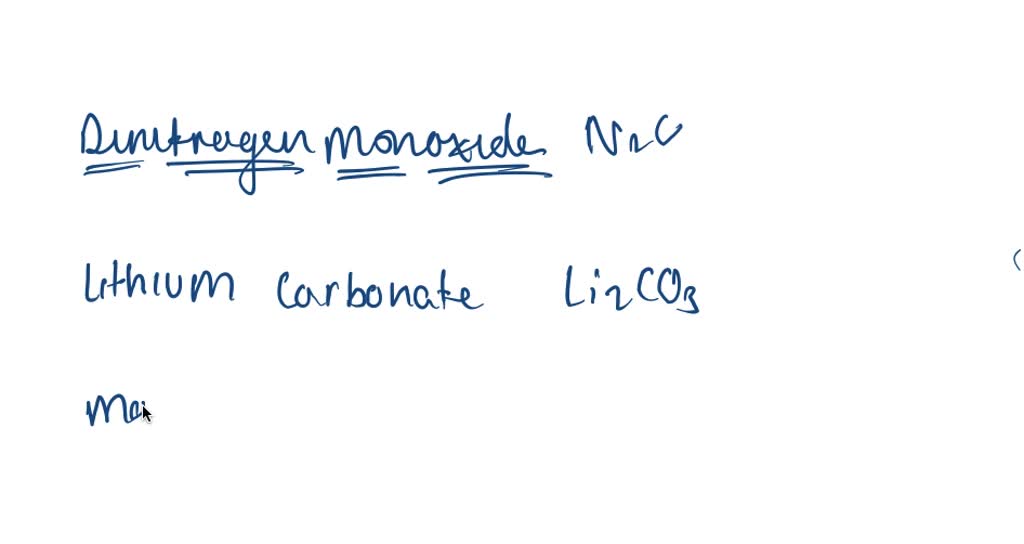 Dinitrogen Monoxide N₂O
Lithium Carbonate Li₂CO₃
Ma